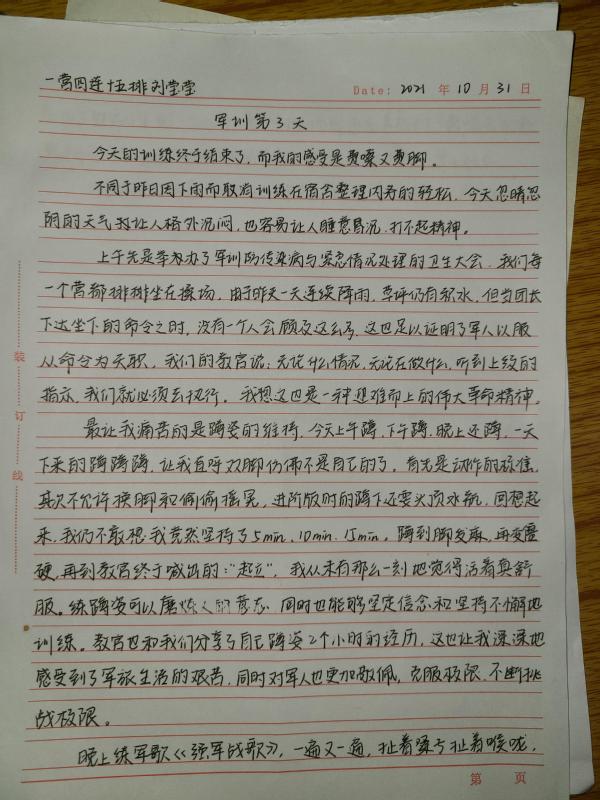 一营四连十五排刘莹莹
Date: 2021 年 10 月 31 日
军训第3天
今天的训练终于结束了,而我的感受是费嗓又费脚。
不同于昨日因下雨而取消训练在宿舍整理内务的轻松,今天忽晴忽
阴的天气却让人格外沉闷,也容易让人睡意昏沉,打不起精神。
上午先是举办了军训防传染病与紧急情况处理的卫生大会,我们每
一个营都排排坐在操场,由于昨天一天连续降雨,草坪仍有积水,但当团长
下达坐下的命令之时,没有一个人会顾及这么多,这也足以证明了军人以服
从命令为天职。我们的教官说:无论什么情况,无论在做什么,听到上级的
指示,我们就必须去执行。我想这也是一种迎难而上的伟大革命精神。
最让我痛苦的是蹲姿的维持,今天上午蹲,下午蹲,晚上还蹲,一天
下来的蹲蹲蹲,让我直呼双脚仿佛不是自己的了。首先是动作的标准,
其次不允许换脚和偷偷摇晃,进阶版时的蹲下还要头顶水瓶,回想起
来,我仍不敢想我竟然坚持了5min、10min、15min。蹲到脚发麻,再变僵
硬,再到教官终于喊出的:"起立",我从未有那么一刻地觉得活着真舒
服。练蹲姿可以磨炼人的意志,同时也能够坚定信念和坚持不懈地
训练。教官也和我们分享了自己蹲姿2个小时的经历,这也让我深深地
感受到了军旅生活的艰苦,同时对军人也更加敬佩,克服极限,不断挑
战极限。
晚上练军歌《强军战歌》,一遍又一遍,扯着嗓子扯着喉咙,
装
订
线
第 页